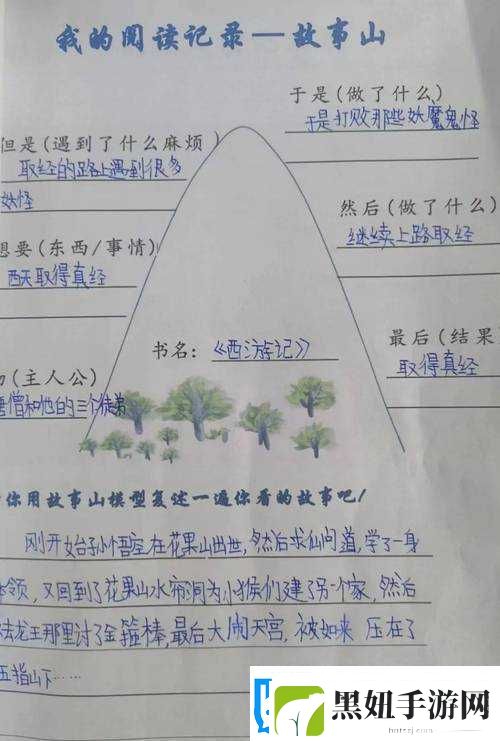 我的阅读记录—故事山
于是(做了什么)
于是打败那些妖魔鬼怪
但是(遇到了什么麻烦)
取经的路上遇到很多
妖怪
然后(做了什么)
继续上路取经
想要(东西/事情)
西天取得真经
最后(结果
取得真经
书名:《西游记》
(主人公)
唐僧和他的三个徒弟
你用故事山模型复述一遍你看的故事吧!
刚开始孙悟空在花果山出世,然后求仙问道,学了一身
本领,又回到了花果山水帘洞为小猴们建了另一个家,然后
去龙王那里讨了金箍棒,最后大闹天宫,被如来 压在了
五指山下……
黑妞手游网